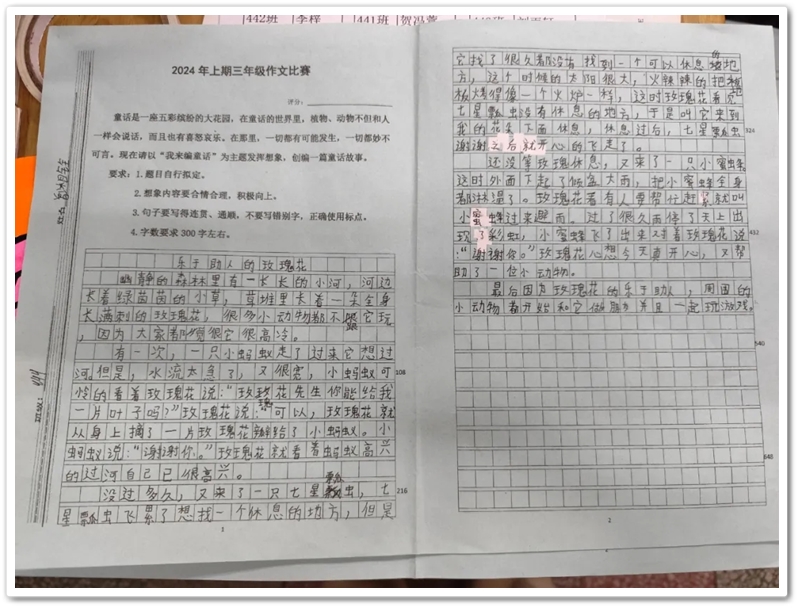 442班 李梓 441班 贺冯萱
2024年上期三年级作文比赛
评分:
童话是一座五彩缤纷的大花园，在童话的世界里，植物、动物不但和人
一样会说话，而且也有喜怒哀乐。在那里，一切都有可能发生，一切都妙不
可言。现在请以“我来编童话”为主题发挥想象，创编一篇童话故事。
要求：1.题目自行拟定。
2.想象内容要合情合理，积极向上。
3.句子要写得连贯、通顺，不要写错别字，正确使用标点。
4.字数要求300字左右。
乐于助人的玫瑰花
幽静的森林里有一长长的小河，河边
长着绿茵茵的小草，草堆里长着一朵全身
长满刺的玫瑰花，很多小动物都不跟它玩
，因为大家都觉很它很高冷。
有一次，一只小蚂蚁走了过来它想过
河。但是，水流太急了，又很宽，小蚂蚁可
108
怜的看着玫瑰花说：“玫瑰花先生你能给我
一片叶子吗？”玫瑰花说：“可以，玫瑰花就
从身上摘了一片玫瑰花瓣给了小蚂蚁。小
蚂蚁说：“谢谢你。”玫瑰花就看着蚂蚁高兴
的过河自己已很高兴。
没过多久，又来了一只七星瓢虫，七
216
星瓢虫飞累了想找一个休息的地方，但是
1
它找了很久都没有找到一个可以休息的地
方，这个时候的太阳很大，火辣辣的把地
板烤得像一个火炉一样，这时玫瑰花看见
七星瓢虫没有休息的地方，于是叫它来到
我的花朵下面休息，休息过后，七星瓢虫
324
谢谢之后就开心的飞走了。
还没等玫瑰休息，又来了一只小蜜蜂。
这时外面下起了倾盆大雨，把小蜜蜂全身
都淋湿了。玫瑰花看有人要帮忙赶紧就叫
小蜜蜂过来避雨。过了很久雨停了天上出
432
现了彩虹，小蜜蜂飞了出来对着玫瑰花说
：“谢谢你。”玫瑰花心想今天真开心，又帮
助了一位小动物。
最后因为玫瑰花的乐于助人，周围的
小动物都开始和它做朋友并且一起玩游戏。
540
648
2